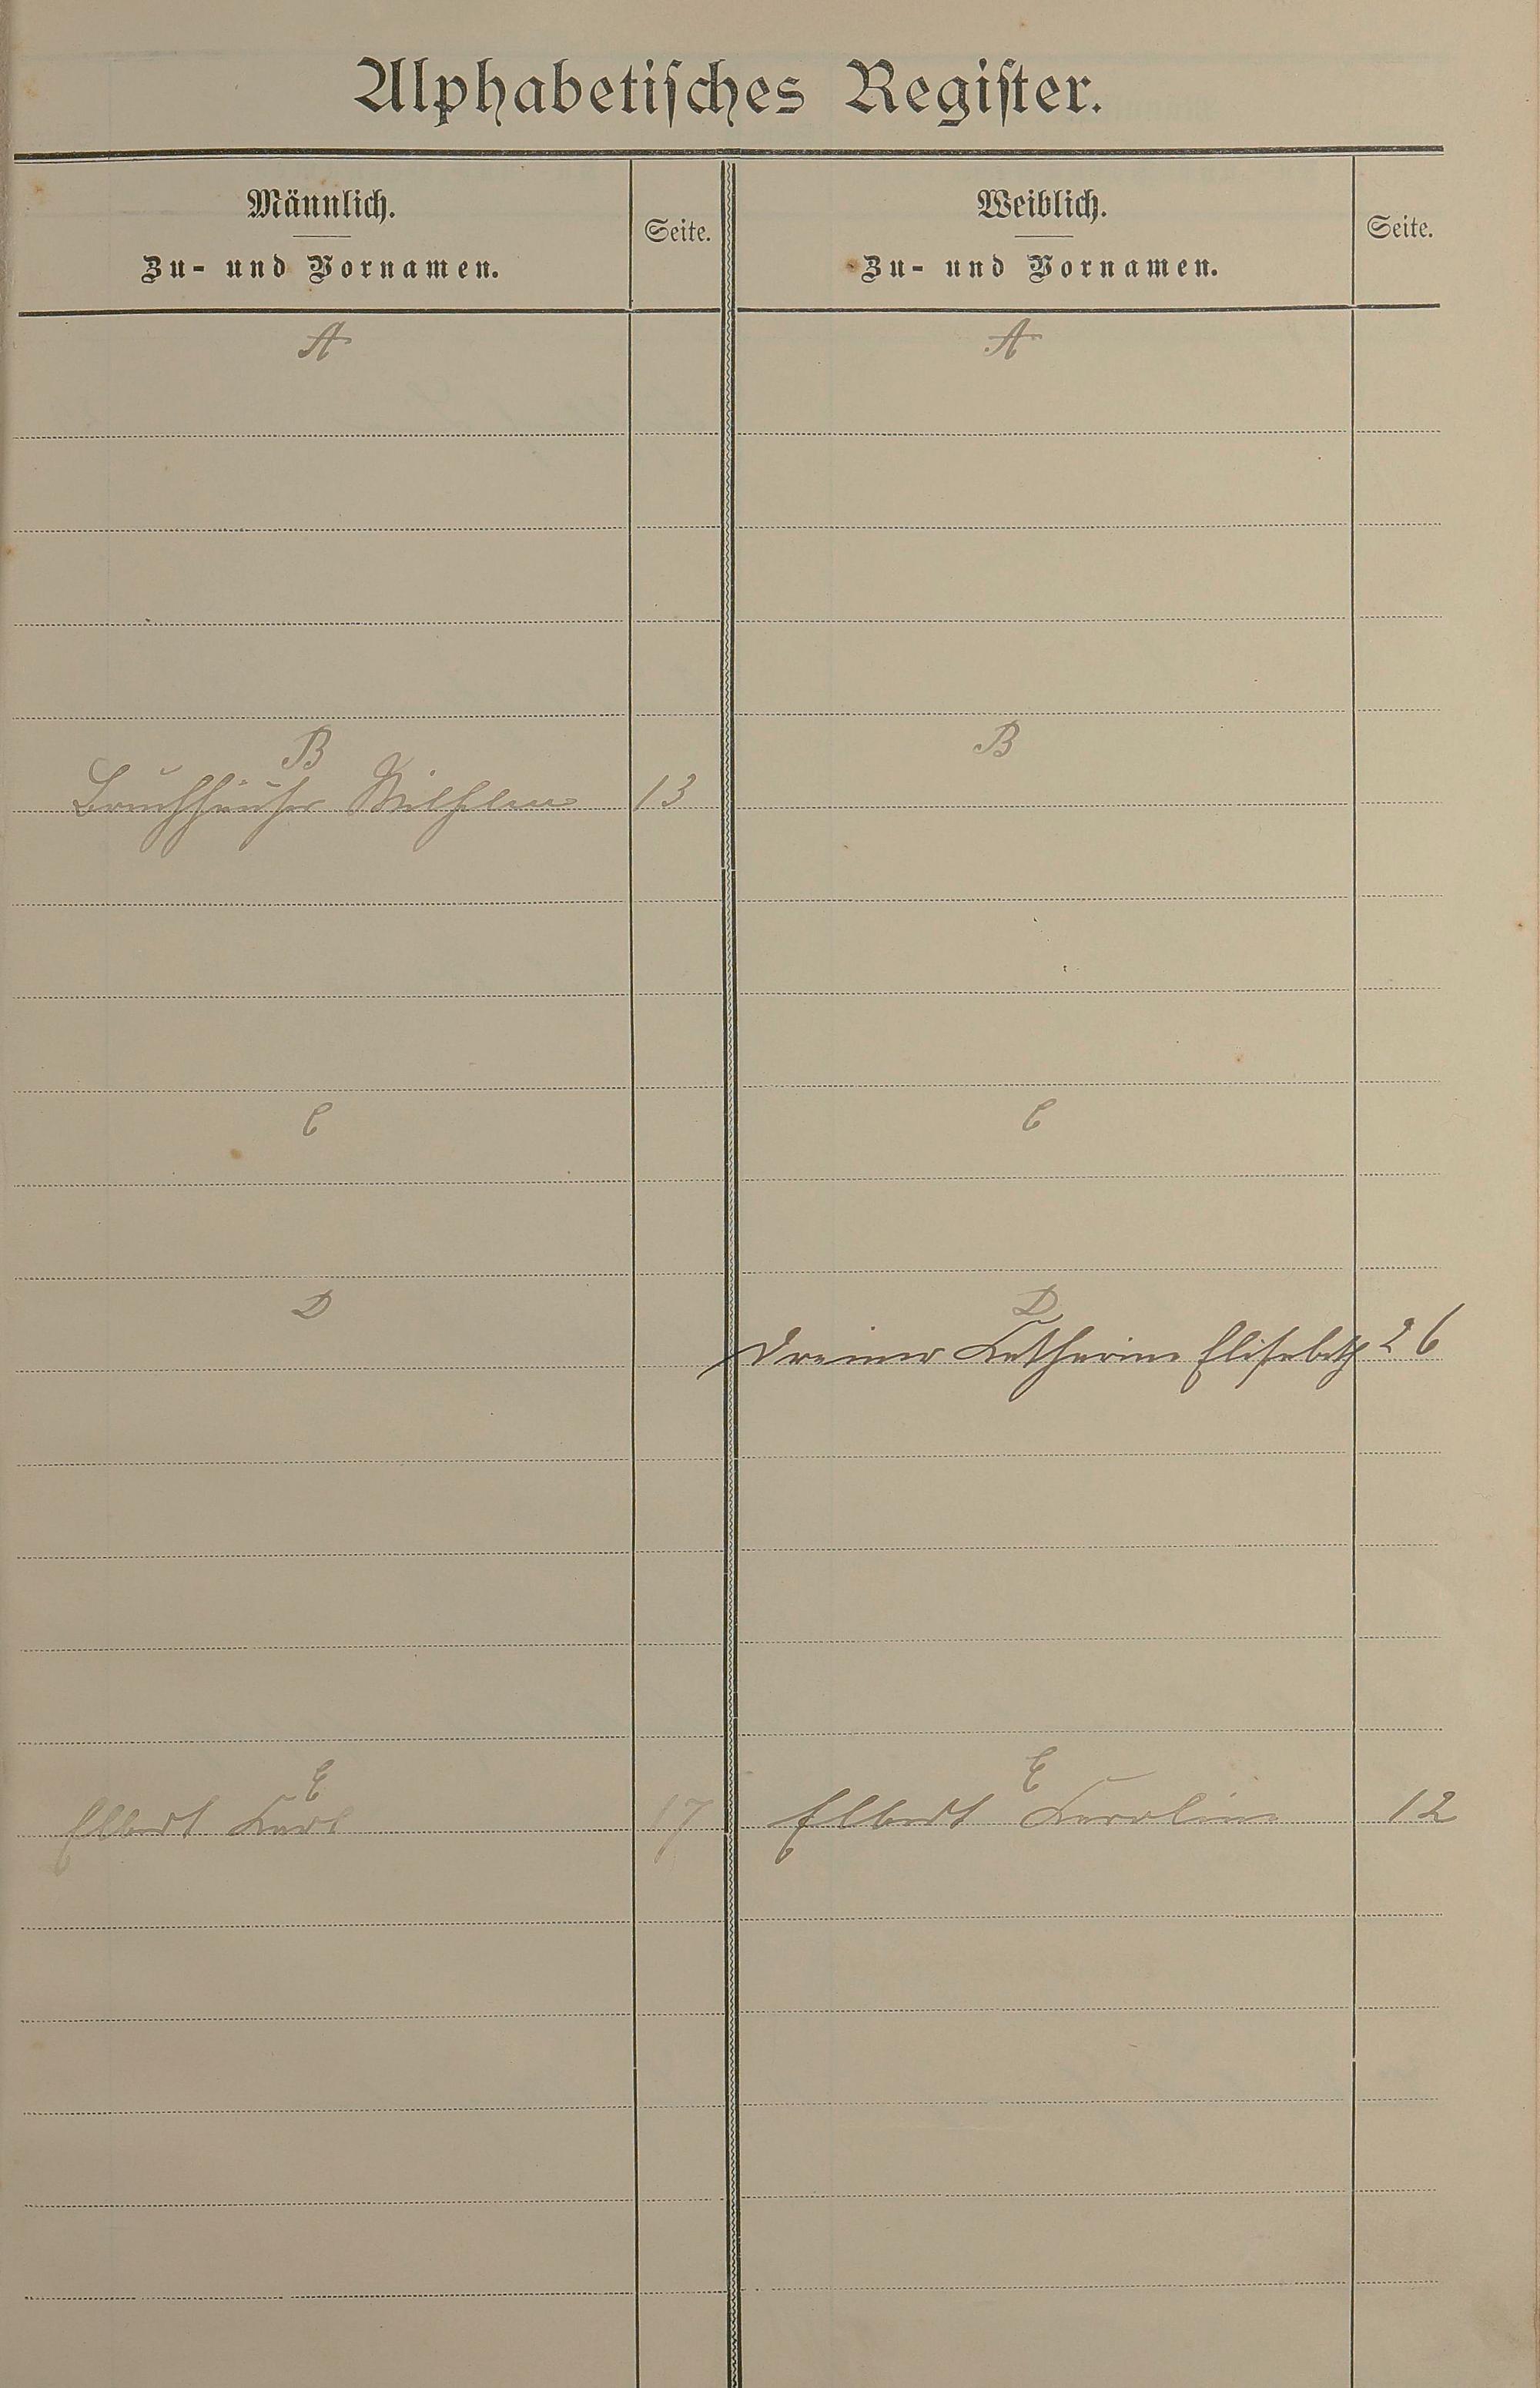 Alphabetisches Register.
Männlich. Seite. Weiblich. Seite.
Zu- und Vornamen. Zu- und Vornamen.
A A
B B
Bruchhäuser Wilhelm 13
C C
D D
Katharina Elisabeth 26
E E
Elbert Karl 17 Elbert Karoline 12